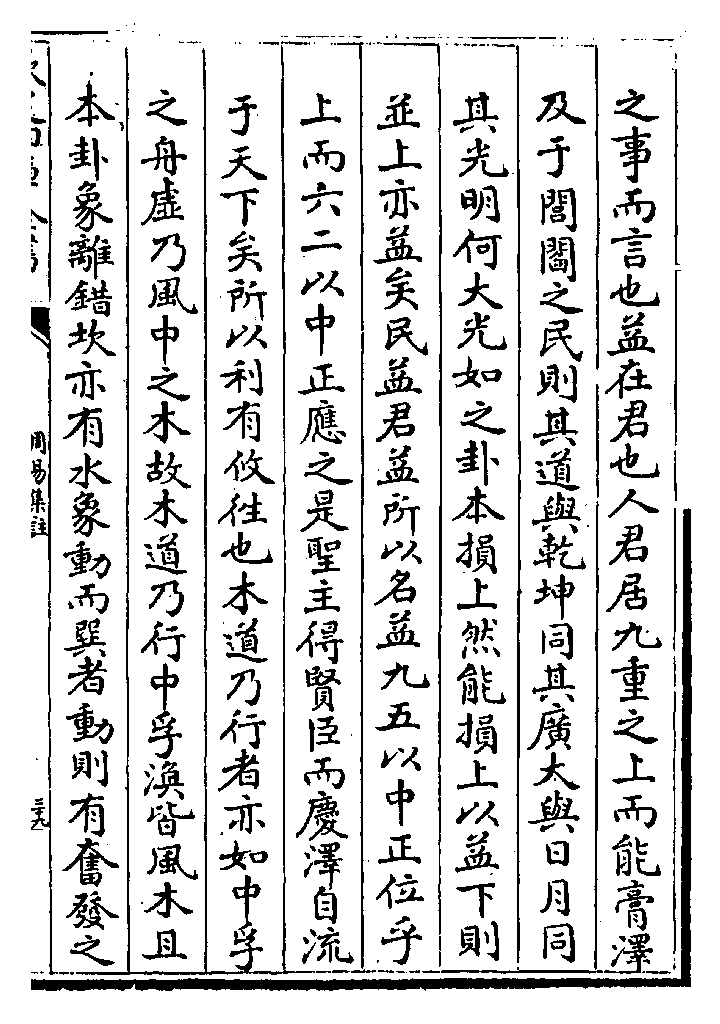 之事而言也益在君也人君居九重之上而能膏澤
及于閭閻之民則其道與乾坤同其廣大與日月同
其光明何大光如之卦本損上然能損上以益下則
並上亦益矣民益君益所以名益九五以中正位乎
上而六二以中正應之是聖主得賢臣而慶澤自流
于天下矣所以利有攸往也木道乃行者亦如中孚
之舟虛乃風中之木故木道乃行中孚渙皆風木且
本卦象離錯坎亦有水象動而巽者動則有奮發之
周易集註